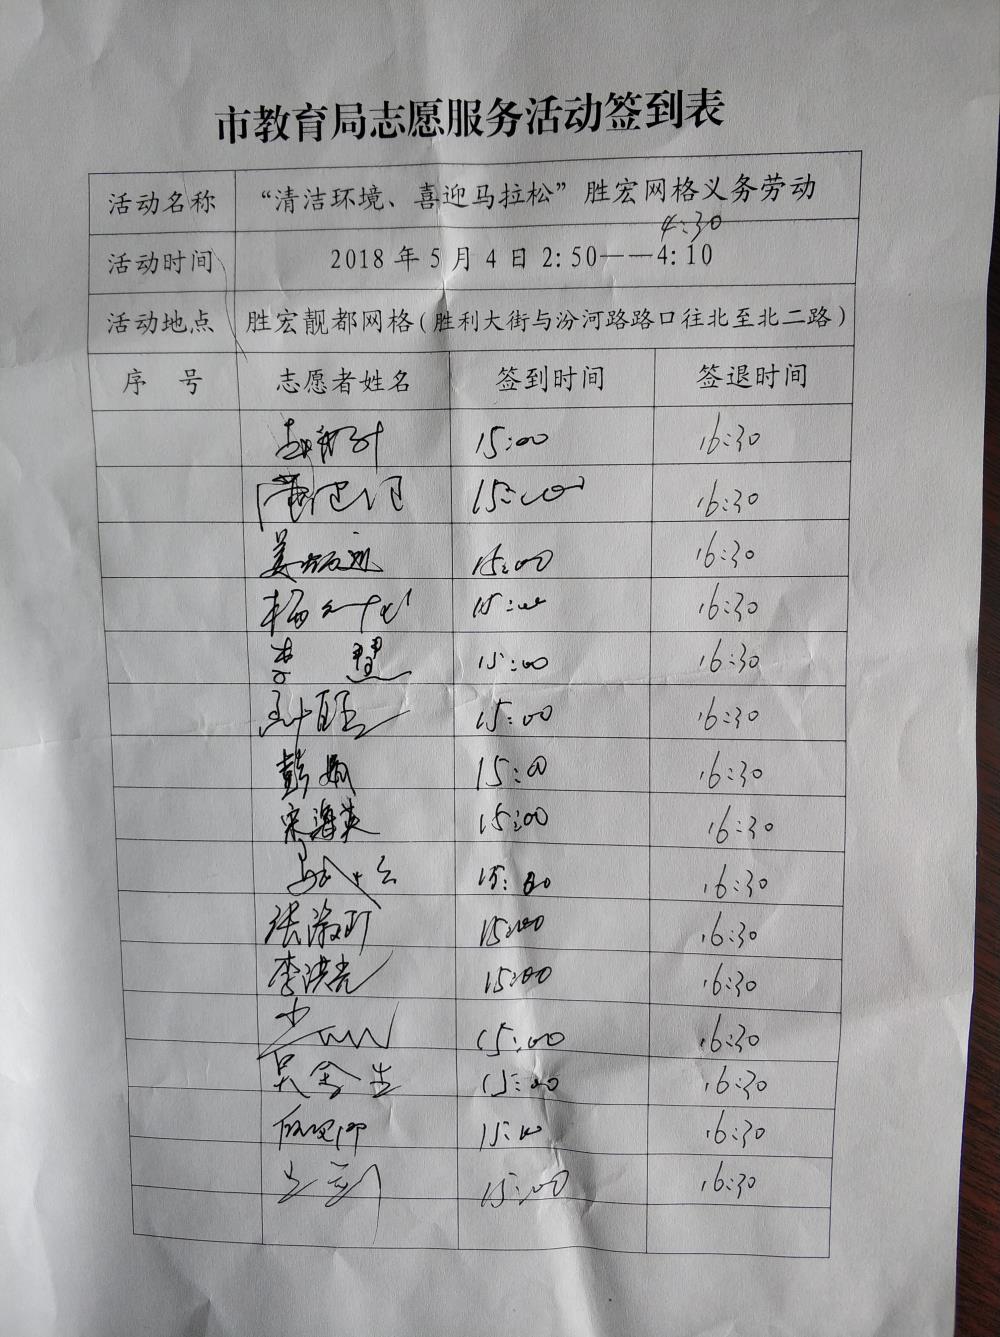 市教育局志愿服务活动签到表
活动名称 “清洁环境、喜迎马拉松”胜宏网格义务劳动
4:30
活动时间 2018年5月4日2:50——4:10
活动地点 胜宏靓都网格(胜利大街与汾河路路口往北至北二路)
序 号 志愿者姓名 签到时间 签退时间
15:00 16:30
15:00 16:30
姜 15:00 16:30
杨 15:00 16:30
李 慧 15:00 16:30
15:00 16:30
彭娟 15:00 16:30
宋海英 15:00 16:30
15:00 16:30
张淑 15:00 16:30
李洪亮 15:00 16:30
15:00 16:30
吴金生 15:00 16:30
15:00 16:30
15:00 16:30